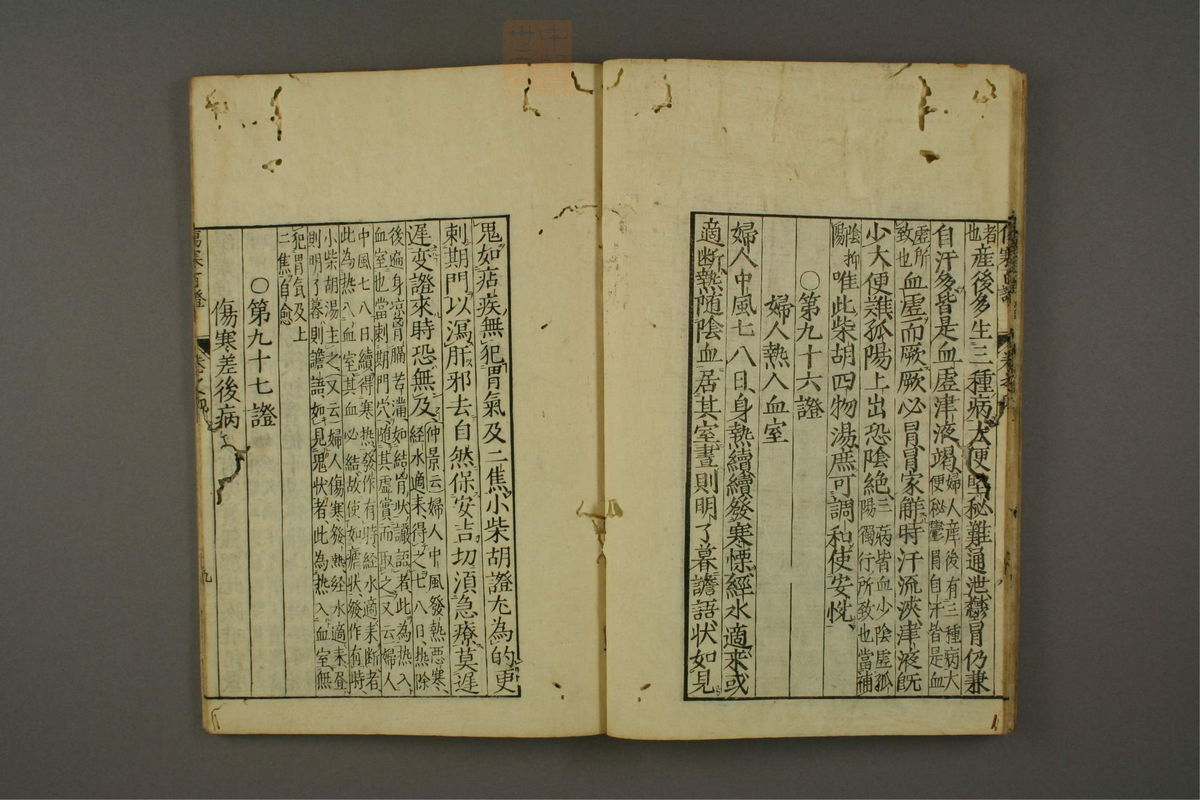 者
也產後多生三種病大便堅秘難通泄鬱冒仍兼
自汗多皆是血虛津液竭婦人產後有三種病大
便秘鬱冒自汗皆是血
虛所
致也血虛而厥厥必冒冒家解時汗流浹津液既
少大便難孤陽上出恐陰絶三病皆血少陰虛孤
陽獨行所致也當補
陰抑
陽唯此柴胡四物湯庶可調和使安悅
○第九十六證
婦人熱入血室
婦人中風七八日身熱續續發寒慄經水適來或
適斷熱随陰血居其室晝則明了暮譫語状如見
鬼如痁疾無犯胃氣及二焦小柴胡證尢為的更
刺期門以瀉肝邪去自然保安吉切須急療莫遲
遲变證來時恐無及仲景云婦人中風發熱惡寒
經水適来得之七八日熱除
後遍身凉胷膈苦滿如結胷状讝語者此為热入
血室也當刺期門穴随其虛實而取之又云婦人
中風七八日續得寒热發作有時經水適来断者
此為热入血室其血必結故使如瘧状發作有時
小柴胡湯主之又云婦人傷寒發热經水適来昼
則明了暮則譫語如見鬼状者此為热入血室無
犯胃氣及上
二焦自愈
○第九十七證
傷寒差後病
傷寒百證
九